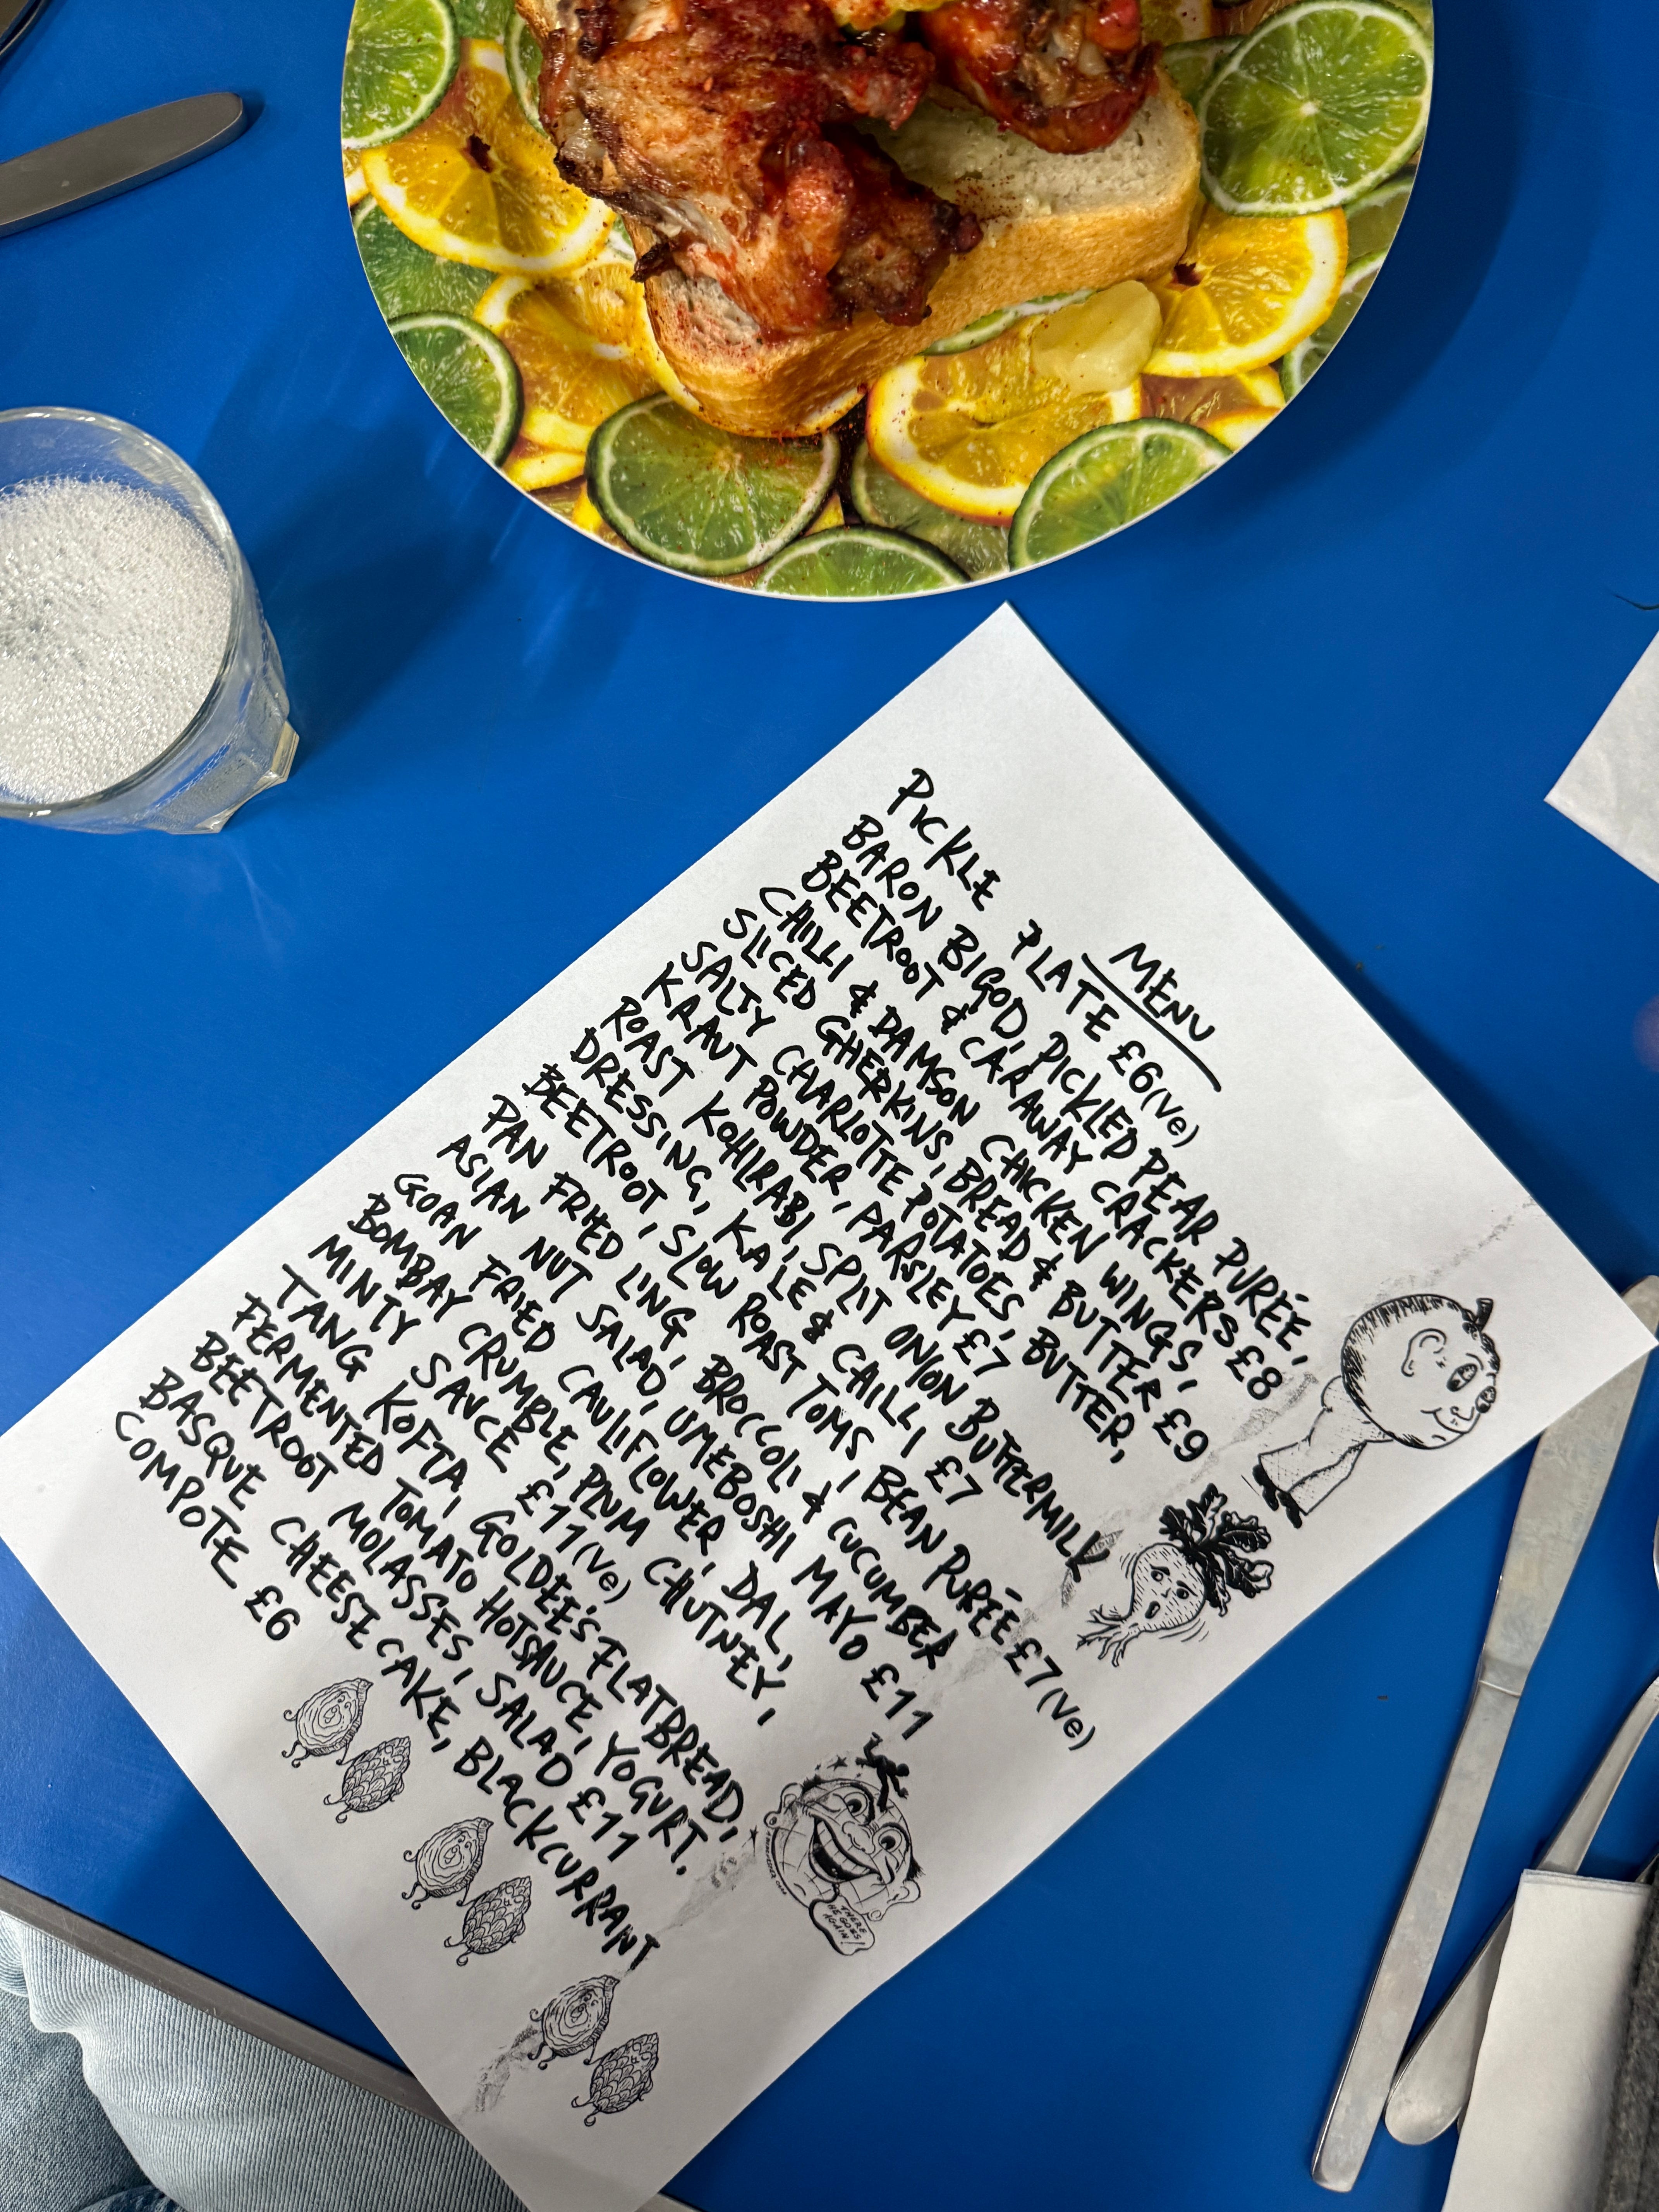 MENU
PICKLE PLATE £6(Ve)
BARON BIGOD, PICKLED PEAR PURÉE,
BEETROOT & CARAWAY CRACKERS £8
CHILLI & DAMSON CHICKEN WINGS,
SLICED GHERKINS, BREAD & BUTTER £9
SALTY CHARLOTTE POTATOES, BUTTER,
KRAUT POWDER, PARSLEY £7
ROAST KOHLRABI, SPLIT ONION BUTTERMILK
DRESSING, KALE & CHILLI £7
BEETROOT, SLOW ROAST TOMS, BEAN PURÉE £7(Ve)
PAN FRIED LING, BROCCOLI & CUCUMBER
ASIAN NUT SALAD, UMEBOSHI MAYO £11
GOAN FRIED CAULIFLOWER, DAL,
BOMBAY CRUMBLE, PLUM CHUTNEY,
MINTY SAUCE £11(Ve)
TANG KOFTA, GOLDEE'S FLATBREAD,
FERMENTED TOMATO HOTSAUCE, YOGURT.
BEETROOT MOLASSES, SALAD £11
BASQUE CHEESECAKE, BLACKCURRANT
COMPOTE £6
THERE
HE GOES
AGAIN!